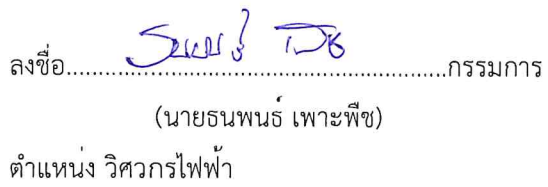 ลงชื่อ....................................................กรรมการ
(นายธนพนธ์ เพาะพืช)
ตำแหน่ง วิศวกรไฟฟ้า